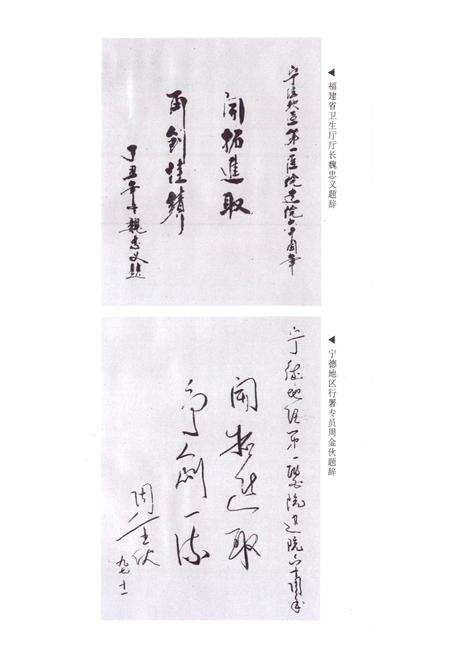 ◀ 福建省卫生厅厅长魏忠义题辞
宁德地区第一医院建院六十周年
開拓進取
再创佳績
丁丑年冬魏忠义题
◀ 宁德地区行署专员周金伙题辞
宁德地区第一医院建院六十周年
開拓进取
争创一流
周金伙
九七.十一